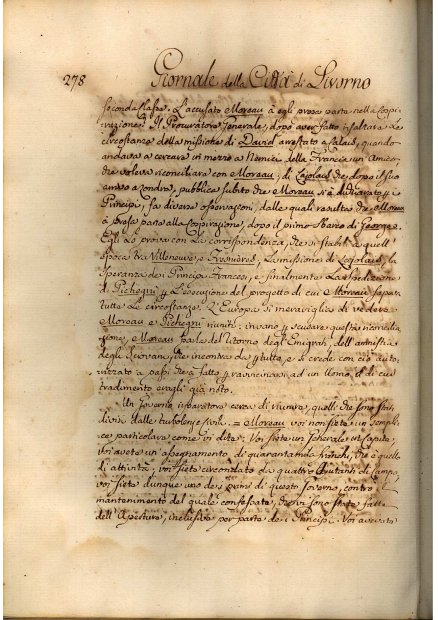 278 Giornale della Città di Livorno
seconda classe. L'accusato Moreau à egli preso parte nella Cospi-
razione? Il Procuratore Generale, dopo aver fatto risaltare le
circostanze della missione di David arrestato a Calais, quando
andava a cercare in mezzo a Nemici della Francia un Amico,
che voleva riconciliare con Moreau; di Lajolais che, dopo il suo
arrivo a Londra, pubblica subito che Moreau si è dichiarato p i
Principi, fa diverse osservazioni, dalle quali resulta che Moreau
à preso parte alla Cospirazione, dopo il primo Sbarco di George.
Egli lo prova con la corrispondenza, che si stabilì a quell'
epoca tra Villeneuve e Fresnieres, La missione di Lajolais, la
speranza dei Principi Francesi, e finalmente La spedizione
di Pichegrù p L'esecuzione del progetto di cui Moreau sapea
tutte Le circostanze. L'Europa si meraviglia di vedere
Moreau e Pichegrù riuniti: invano p scusare questa riconcilia-
zione, Moreau parla del ritorno degl'Emigrati, dell'amnistia
degli Sciovani, che incontra da p tutto, e si crede con ciò auto-
rizzato a passi che à fatto p ravvicinarsi ad un Uomo, il di cui
tradimento eragli già noto.
Un Governo riparatore cerca di riunire quelli che sono stati
divisi dalle turbolenze civili. = Moreau voi non siete un sempli-
ce particolare come voi dite: Voi siete un Generale in Capite,
voi avete un assegnamento di quarantamila franchi, che è quello
di attività, voi siete circondato da quattro Aiutanti di Campo,
voi siete dunque uno dei primi di questo Governo, contro il
mantenimento del quale confessate, che vi sono state fatte
dell'Aperture, inclusive per parte dei Principi. Voi avevate